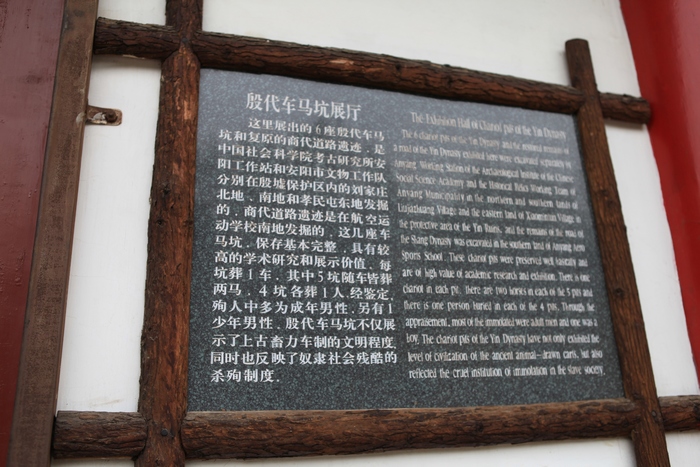 殷代车马坑展厅
这里展出的6座殷代车马
坑和复原的商代道路遗迹，是
中国社会科学院考古研究所安
阳工作站和安阳市文物工作队
分别在殷墟保护区内的刘家庄
北地、南地和孝民屯东地发掘
的，商代道路遗迹是在航空运
动学校南地发掘的，这几座车
马坑，保存基本完整，具有较
高的学术研究和展示价值，每
坑葬1车，其中5坑随车皆葬
两马，4坑各葬1人，经鉴定，
殉人中多为成年男性，另有1
少年男性，殷代车马坑不仅展
示了上古畜力车制的文明程度，
同时也反映了奴隶社会残酷的
杀殉制度．
The Exhibition Hall of Chariot pits of the Yin Dynasty
The 6 chariot pits of the Yin Dynasty and the restored remains of
a road of the Yin Dynasty exhibited here were excavated separately by
Anyang Working Station of the Archaeological Institute of the Chinese
Social Science Academy and the Historical Relics Working Team of
Anyang Municipality in the northern and southern lands of
Liujiazhuang Village and the eastern land of Xiaomintun Village in
the protective area of the Yin Ruins, and the remains of the road of
the Shang Dynasty was excavated in the southern land of Anyang Aero
Sports School. These chariot pits were preserved well basically and
are of high value of academic research and exhibition. There is one
chariot in each pit. There are two horses in each of the 5 pits and
there is one person buried in each of the 4 pits. Through the
appraisement, most of the immolated were adult men and one was a
boy. The chariot pits of the Yin Dynasty have not only exhibited the
level of civilization of the ancient animal-drawn carts, but also
reflected the cruel institution of immolation in the slave society.